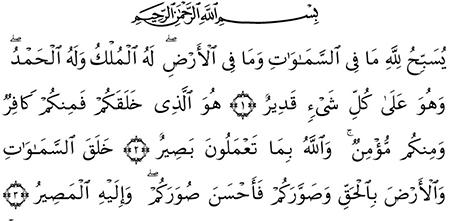 بِسْمِ اللَّهِ الرَّحْمَٰنِ الرَّحِيمِ
يُسَبِّحُ لِلَّهِ مَا فِي السَّمَاوَاتِ وَمَا فِي الْأَرْضِ ۖ لَهُ الْمُلْكُ وَلَهُ الْحَمْدُ ۖ
وَهُوَ عَلَىٰ كُلِّ شَيْءٍ قَدِيرٌ ﴿١﴾ هُوَ الَّذِي خَلَقَكُمْ فَمِنكُمْ كَافِرٌ
وَمِنكُم مُّؤْمِنٌ ۚ وَاللَّهُ بِمَا تَعْمَلُونَ بَصِيرٌ ﴿٢﴾ خَلَقَ السَّمَاوَاتِ
وَالْأَرْضَ بِالْحَقِّ وَصَوَّرَكُمْ فَأَحْسَنَ صُوَرَكُمْ ۖ وَإِلَيْهِ الْمَصِيرُ ﴿٣﴾